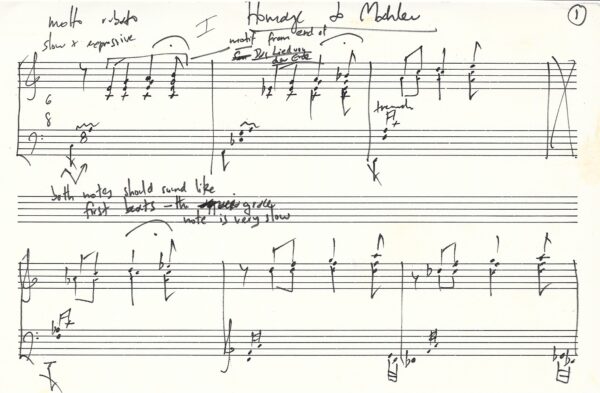 molto rubato
I
Homage to Mahler
1
slow + expressive
motif from end of
Der Lied von
der Erde
6
8
tremolo
both notes should sound like
first beats - the grace
note is very slow